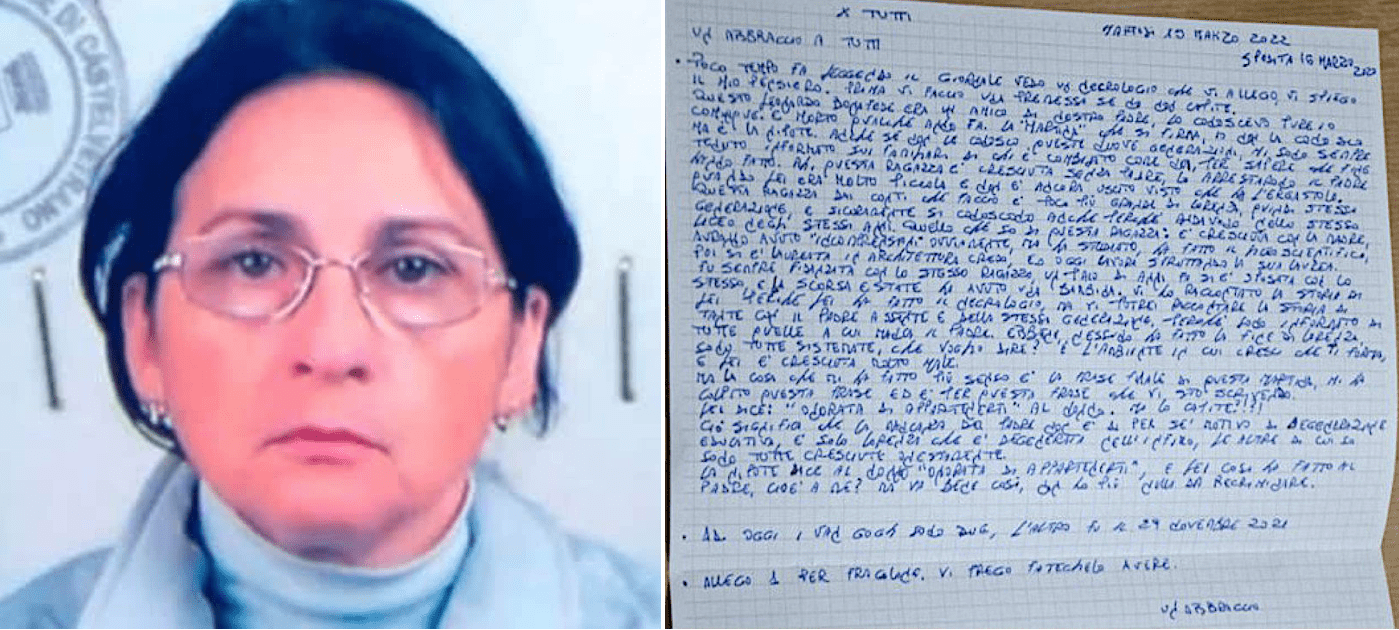 E DI CASTELVETRANO
X TUTTI
MARTEDI 15 MARZO 2022
SPEDITA 16 MARZO 2022
UN ABBRACCIO A TUTTI
• POCO TEMPO FA LEGGENDO IL GIORNALE VEDO UN NECROLOGIO CHE VI ALLEGO, VI SPIEGO
IL MIO PENSIERO. PRIMA VI FACCIO UNA PREMESSA SE NO NON CAPITE.
QUESTO LEONARDO BONAFEDE ERA UN AMICO DI NOSTRO PADRE, LO CONOSCEVO PURE IO
COMUNQUE. È MORTO QUALCHE ANNO FA. LA "MARTINA" CHE SI FIRMA, IO NON LA CONOSCO
MA È LA NIPOTE. ANCHE SE NON LE CONOSCO, QUESTE NUOVE GENERAZIONI, MI SONO SEMPRE
TENUTO INFORMATO SUI FAMILIARI DI CHI È COMBINATO COME NOI, PER SAPERE CHE FINE
HANNO FATTO. QUESTA RAGAZZA È CRESCIUTA SENZA PADRE, LO ARRESTARONO IL PADRE
QUANDO LEI ERA MOLTO PICCOLA E NON È ANCORA USCITO VISTO CHE HA L'ERGASTOLO.
QUESTA RAGAZZA DAI CONTI CHE FACCIO È POCO PIÙ GRANDE DI LORENZA, QUINDI STESSA
GENERAZIONE, E SICURAMENTE SI CONOSCONO ANCHE PERCHÉ ANDAVANO NELLO STESSO
LICEO NEGLI STESSI ANNI. QUELLO CHE SO DI QUESTA RAGAZZA: È CRESCIUTA CON LA MADRE,
AVRANNO AVUTO OVVIAMENTE, MA HA STUDIATO, HA FATTO IL LICEO SCIENTIFICO,
POI SI È LAUREATA IN ARCHITETTURA CREDO, ED OGGI LAVORA SFRUTTANDO LA SUA LAUREA.
FU SEMPRE FIDANZATA CON LO STESSO RAGAZZO, UN PAIO DI ANNI FA SI È SPOSATA CON LO
STESSO, E LA SCORSA ESTATE HA AVUTO UNA BAMBINA. VI HO RACCONTATO LA STORIA DI
LEI PERCHÉ LEI HA FATTO IL NECROLOGIO, MA VI POTREI RACCONTARE LA STORIA DI
TANTE CON IL PADRE ASSENTE E DELLA STESSA GENERAZIONE, PERCHÉ SONO INFORMATO DI
TUTTE QUELLE A CUI MANCA IL PADRE. EBBENE, NESSUNA HA FATTO LA FINE DI LORENZA,
SONO TUTTE SISTEMATE, CHE VOGLIO DIRE? È L'AMBIENTE IN CUI CRESCI CHE TI FORMA,
E LEI È CRESCIUTA MOLTO MALE.
MA LA COSA CHE MI HA FATTO PIÙ SENSO È LA FRASE FINALE DI QUESTA MARTINA, MI HA
COLPITO QUESTA FRASE ED È PER QUESTA FRASE CHE VI STO SCRIVENDO.
LEI DICE: "ONORATA DI APPARTENERTI" AL NONNO. MA LO CAPITE!!!!
CIÒ SIGNIFICA CHE LA MANCANZA DEL PADRE NON È DI PER SÉ MOTIVO DI DEGENERAZIONE
EDUCATIVA, È SOLO LORENZA CHE È DEGENERATA NELL'INFIMO, LE ALTRE DI CUI SO
SONO TUTTE CRESCIUTE ONESTAMENTE.
LA NIPOTE DICE AL NONNO "ONORATA DI APPARTENERTI", E LEI COSA HA FATTO AL
PADRE, CIOÈ A ME? MA VA BENE COSÌ, NON HO PIÙ NULLA DA RECRIMINARE.
• AD OGGI I VAN GOGH SONO DUE, L'ALTRO FU IL 29 NOVEMBRE 2021
• ALLEGO 1 PER FRAGOLONE, VI PREGO FATECHELO AVERE.
UN ABBRACCIO